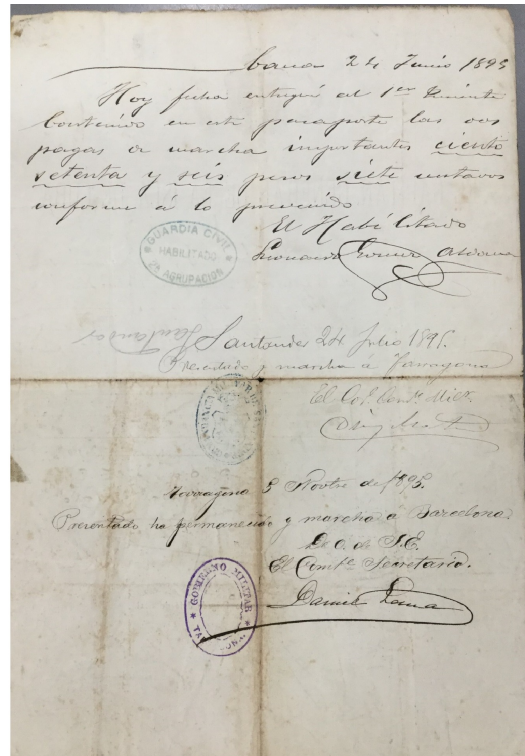 24 Junio 1895
Hoy fecha entregué al 1er Teniente
contenido en este pasaporte las dos
pagas de marcha importantes ciento
setenta y seis pesos siete centavos
conforme á lo prevenido
El Habilitado
GUARDIA CIVIL
HABILITADO
2ª AGRUPACION
Santander
Santander 24 Julio 1895.
Presentado y marcha á Tarragona
El Col. Comte. Milr.
Tarragona 5 Novbre de 1895.
Presentado ha permanecido y marcha á Barcelona.
De O. de S.E.
El Comte. Secretario.
GOBIERNO MILITAR
Daniel